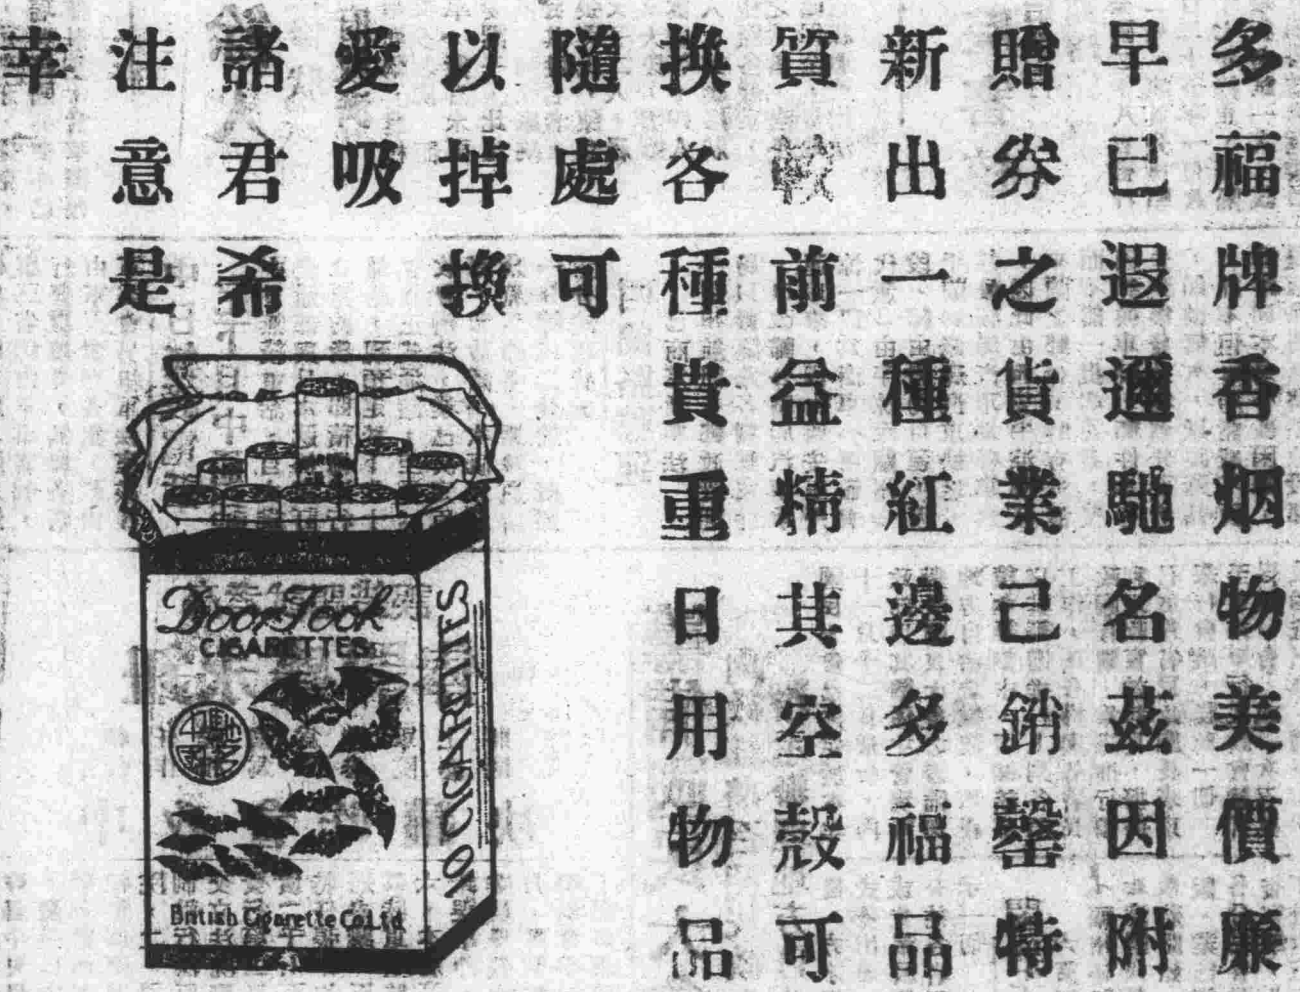 多福牌香烟物美價廉
早已遐邇馳名茲因附
贈券之貨業己銷罄特
新出一種紅邊多福品
質較前益精其空殼可
換各種貴重日用物品
隨處可
以掉換
愛吸
諸君希
注意是
幸
Door Fook
CIGARETTES
10 CIGARETTES
British Cigarette Co Ltd